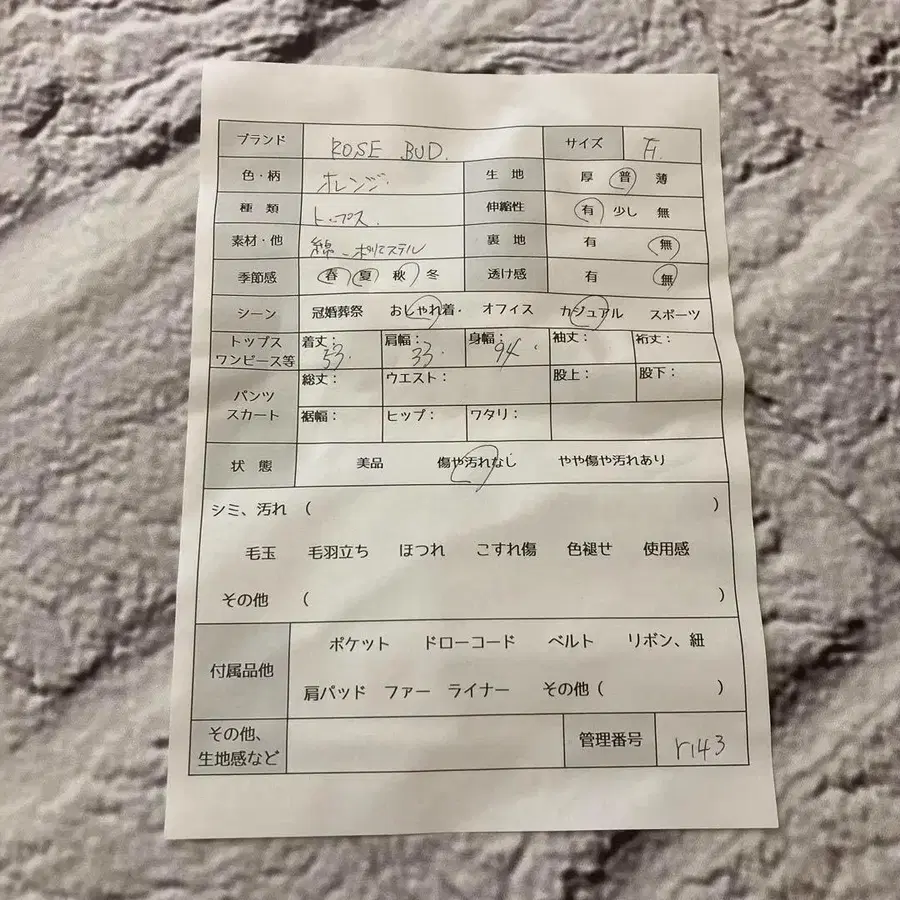 ブランド ROSE BUD. サイズ F.
色・柄 オレンジ. 生 地 厚 普 薄
種 類 トップス. 伸縮性 有 少し 無
素材・他 綿、ポリエステル 裏 地 有 無
季節感 春 夏 秋 冬 透け感 有 無
シーン 冠婚葬祭 おしゃれ着・ オフィス カジュアル スポーツ
トップス ワンピース等 着丈: 53. 肩幅: 33. 身幅: 94. 袖丈: 裄丈:
パンツ スカート 総丈: ウエスト: 股上: 股下:
裾幅: ヒップ: ワタリ:
状 態 美品 傷や汚れなし やや傷や汚れあり
シミ、汚れ ( )
毛玉 毛羽立ち ほつれ こすれ傷 色褪せ 使用感
その他 ( )
付属品他 ポケット ドローコード ベルト リボン、紐
肩パッド ファー ライナー その他 ( )
その他、
生地感など 管理番号 r143